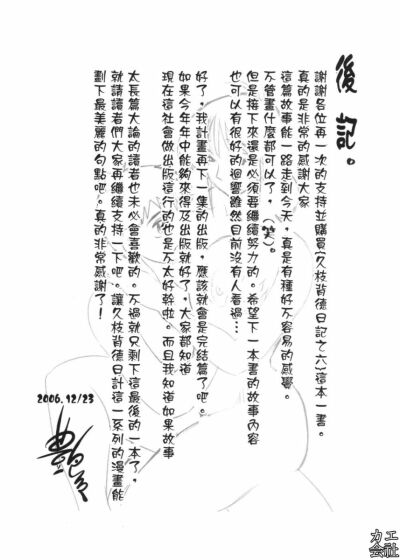 後記。
謝謝各位再一次的支持並購買(久枝背德日記之六)這本一書。
真的是非常的感謝大家
這篇故事能一路走到今天，真是有種好不容易的感覺。
不管畫什麼都可以了，(笑)。
但是接下來還是必須要繼續努力的。希望下一本書的故事內容
也可以有很好的迴響雖然目前沒有人看過…
好了，我計畫再下一集的出版，應該就會是完結篇了吧。
如果今年年中能夠來得及出版就好了，大家都知道
現在這社會做出版這行的也是不太好幹啦。而且我知道如果故事
太長篇大論的讀者也未必會喜歡的。不過就只剩下這最後的一本了，
就請讀者們大家再繼續支持一下吧。讓久枝背德日計這一系列的漫畫能
劃下最美麗的句點吧。真的非常感謝了！
2006.12/23
カエ
会社